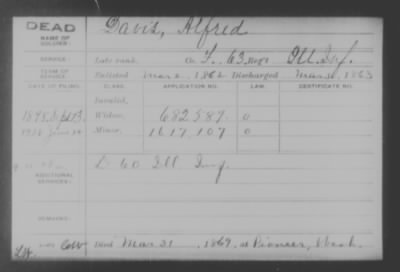 DEAD
Davis, Alfred
NAME OF SOLDIER:
SERVICE: Late rank, Co. F. 63 Regt Ill Inf.
TERM OF SERVICE: Enlisted Mar 2, 1862 Discharged Mar 1863
DATE OF FILING. CLASS. APPLICATION NO. LAW. CERTIFICATE NO.
Invalid,
1898 Widow, 682,587 0
Minor, 1617,107 0
ADDITIONAL SERVICES: D 60 Ill Inf
REMARKS:
Died Mar 31, 1869, at Pioneer, Wash